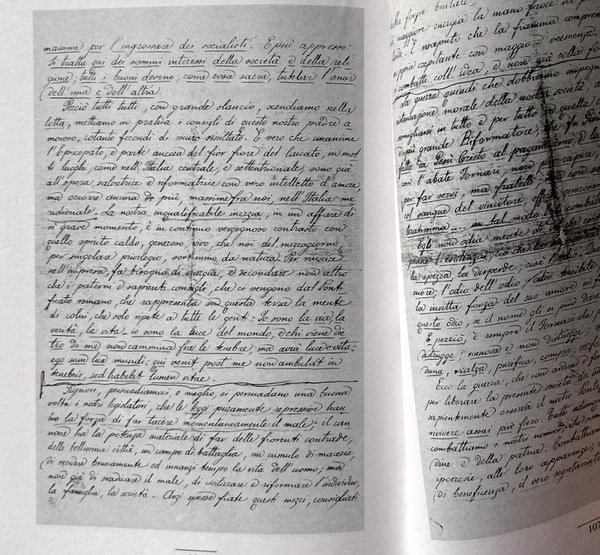 massime per l'ingrossare dei socialisti. E più appresso:
Si tratta qui dei sommi interessi della società e della reli-
gione; tutti i buoni devono, come cosa sacra, tutelar l'onor
dell'una e dell'altra.
Perciò tutti tutti, con grande slancio, scendiamo nella
lotta, mettiamo in pratica i consigli di questo nostro padre a-
moroso, cotanto fecondi di sicuro resultato. È vero che unanime
l'Episcopato, e parte ancora del fior fiore del laicato, in mol-
ti luoghi, come nell'Italia centrale, e settentrionale, sono già
all'opera salvatrice e riformatrice con vero intelletto d'amore,
ma occorre ancora di più, massime fra noi, nell'Italia me-
ridionale. La nostra inqualificabile inezzia, in un affare di
sì grave momento, è in continuo vergognoso contrasto con
quello spirito caldo, generoso, vivo, che noi del mezzogiorno,
per singolare privilegio, sortimmo da natura. Per riuscire
nell'impresa, fa bisogno di energia, e secondare non altro
che i paterni e sapienti consigli, che ci vengono dal Ponti
ficato romano, che rappresenta su questa terra la mente
di colui, che solo ripete a tutte le genti: Io sono la via, la
verità, la vita – io sono la luce del mondo, e chi viene die
tro di me non cammina fra le tenebre, ma avrà luce e vita –
ego sum lux mundi: qui venit post me non ambulabit in
tenebris, sed habebit lumen vitae.
Signori, persuadiamoci, e meglio si persuadano una buona
volta i nostri legislatori, che le leggi puramente repressive han-
no la forza di far tacere momentaneamente il male; il can
none ha la potenza materiale di far delle fiorenti contrade,
delle bellissime città, un campo di battaglia, un cumulo di macerie,
di recidere bruscamente ed innanzi tempo la vita dell'uomo, ma
non già di sradicare il male, di civilizzare e riformare l'individuo,
la famiglia, la società. Anzi spesse fiate questi mezzi, consigliati
delle forze brutali
maggiore energia la mano feroce
È risaputo che la fiamma compren
più capitante con maggiore veemenza.
combatte coll'idea, e non già colla fo
la guerra quindi che dobbiamo impegn
staurazione morale della nostra società, a
in tutto e per tutto a quella
più grande Riformatore
fatta da Gesù Cristo al paganesimo
con l'abate Fornari, non per rapire,
per far servi, ma fratelli:
al sangue del vincitore
in tal modo
Egli non odia
l'esistenza
la spezza la disperde,
cuore; l'odio dell'odio, odio
la invitta forza del suo amore in
questo odio, se il nome gli si può dare
E perciò, è sempre il Fornari che
distrugge, rinnova e non distrugge,
duna, rialza, purifica, compie,
Ecco la guerra, che con ardore
per liberare la presente società da
sapientemente osserva il nostro
rivivere assai più fiero. Tutti
combattiamo i nostri nemici,
dine e della patria. Combattiamo
ipocrisie, alle loro apparenze,
di beneficenza, il vero segretariato
107